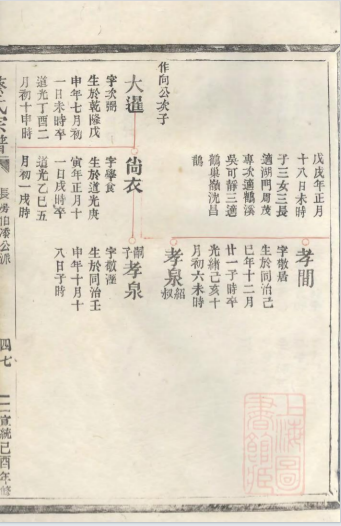 戊戌年正月
十八日未時
子三女三長
適湖門周茂
專次適鶴溪
吳可靜三適
鶴巢嶺洸昌
鶴
孝間
字敬居
生於同治己
巳年十二月
廿一子時卒
光緒己亥十
月初六未時
孝泉 紹叔
作向公次子
大暹
字次弼
生於乾隆戊
申年七月初
一日未時卒
道光丁酉二
月初十申時
尙衣
字學食
生於道光庚
寅年正月十
一日戌時卒
道光乙巳五
月初一戌時
嗣子 孝泉
字敬湮
生於同治壬
申年十月十
八日子時
蔡氏宗譜
長房伯濬公派
四七
宣統己酉年修
上海圖書館藏